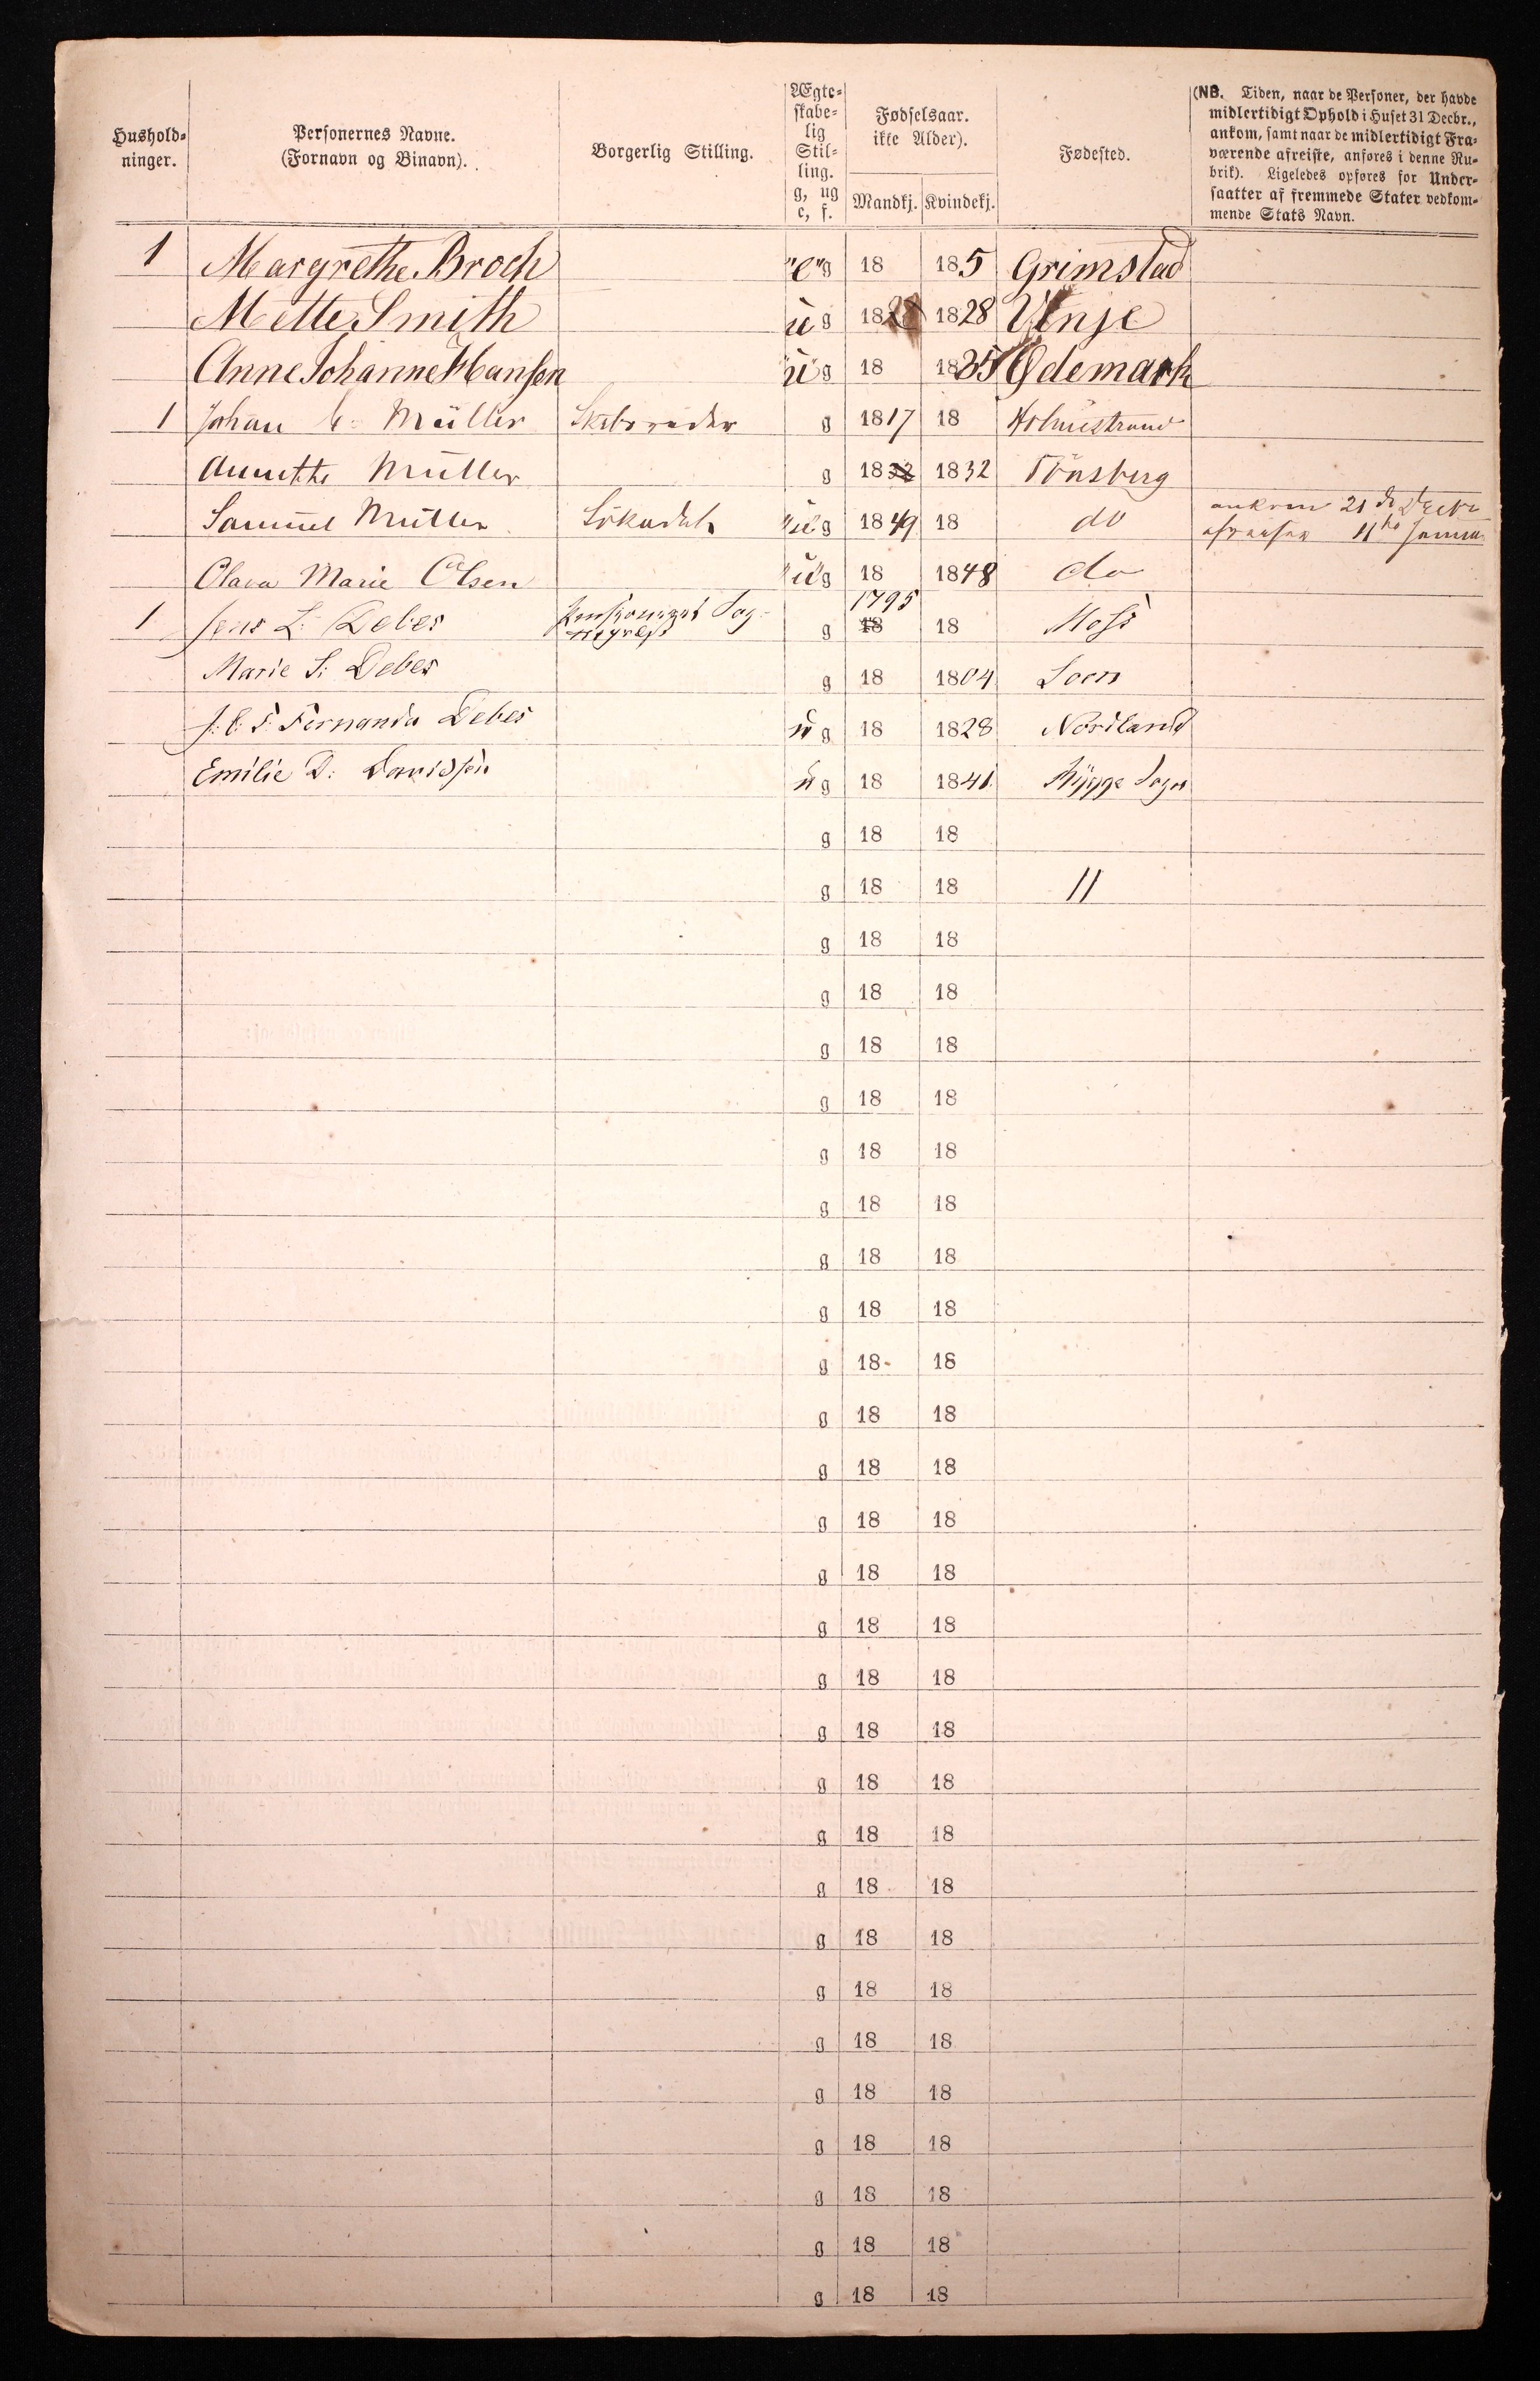 Hushold-
ninger.
Personernes Navne.
(Fornavn og Binavn).
Borgerlig Stilling.
Ægte-
skabe-
lig
Stil-
ling.
g, ug
e, f.
Fødselsaar.
ikke Alder).
Mandkj. Kvindekj.
Fødested.
(NB. Tiden, naar de Personer, der havde
midlertidigt Ophold i Huset 31 Decbr.,
ankom, samt naar de midlertidigt Fra-
værende afreiste, anføres i denne Ru-
brik). Ligeledes opføres for Under-
saatter af fremmede Stater vedkom-
mende Stats Navn.
1 Margrethe Broch "e"g 18 185 Grimstad
Mette Smith ug 1828 1828 Vinje
Anne Johanne Hansen ug 18 1835 Ødemark
1 Johan C. Müller Skibsreder g 1817 18 Holmestrand
Annette Müller g 1832 1832 Tönsberg
Samuel Müller Sökadet ug 1849 18 do ankom 21 de Decbr
afreiser 11te Januar
Olava Marie Olsen ug 18 1848 do
1 Jens L. Debes Pensioneret Sog- 1795
nepræst g 18 18 Moss
Marie S: Debes g 18 1804 Soon
J: C: F: Fernanda Debes ug 18 1828 Nordland
Emilie D: Davidsen ug 18 1841 Rygge Sogn
g 18 18
g 18 18 11
g 18 18
g 18 18
g 18 18
g 18 18
g 18 18
g 18 18
g 18 18
g 18 18
g 18 18
g 18 18
g 18 18
g 18 18
g 18 18
g 18 18
g 18 18
g 18 18
g 18 18
g 18 18
g 18 18
g 18 18
g 18 18
g 18 18
g 18 18
g 18 18
g 18 18
g 18 18
g 18 18